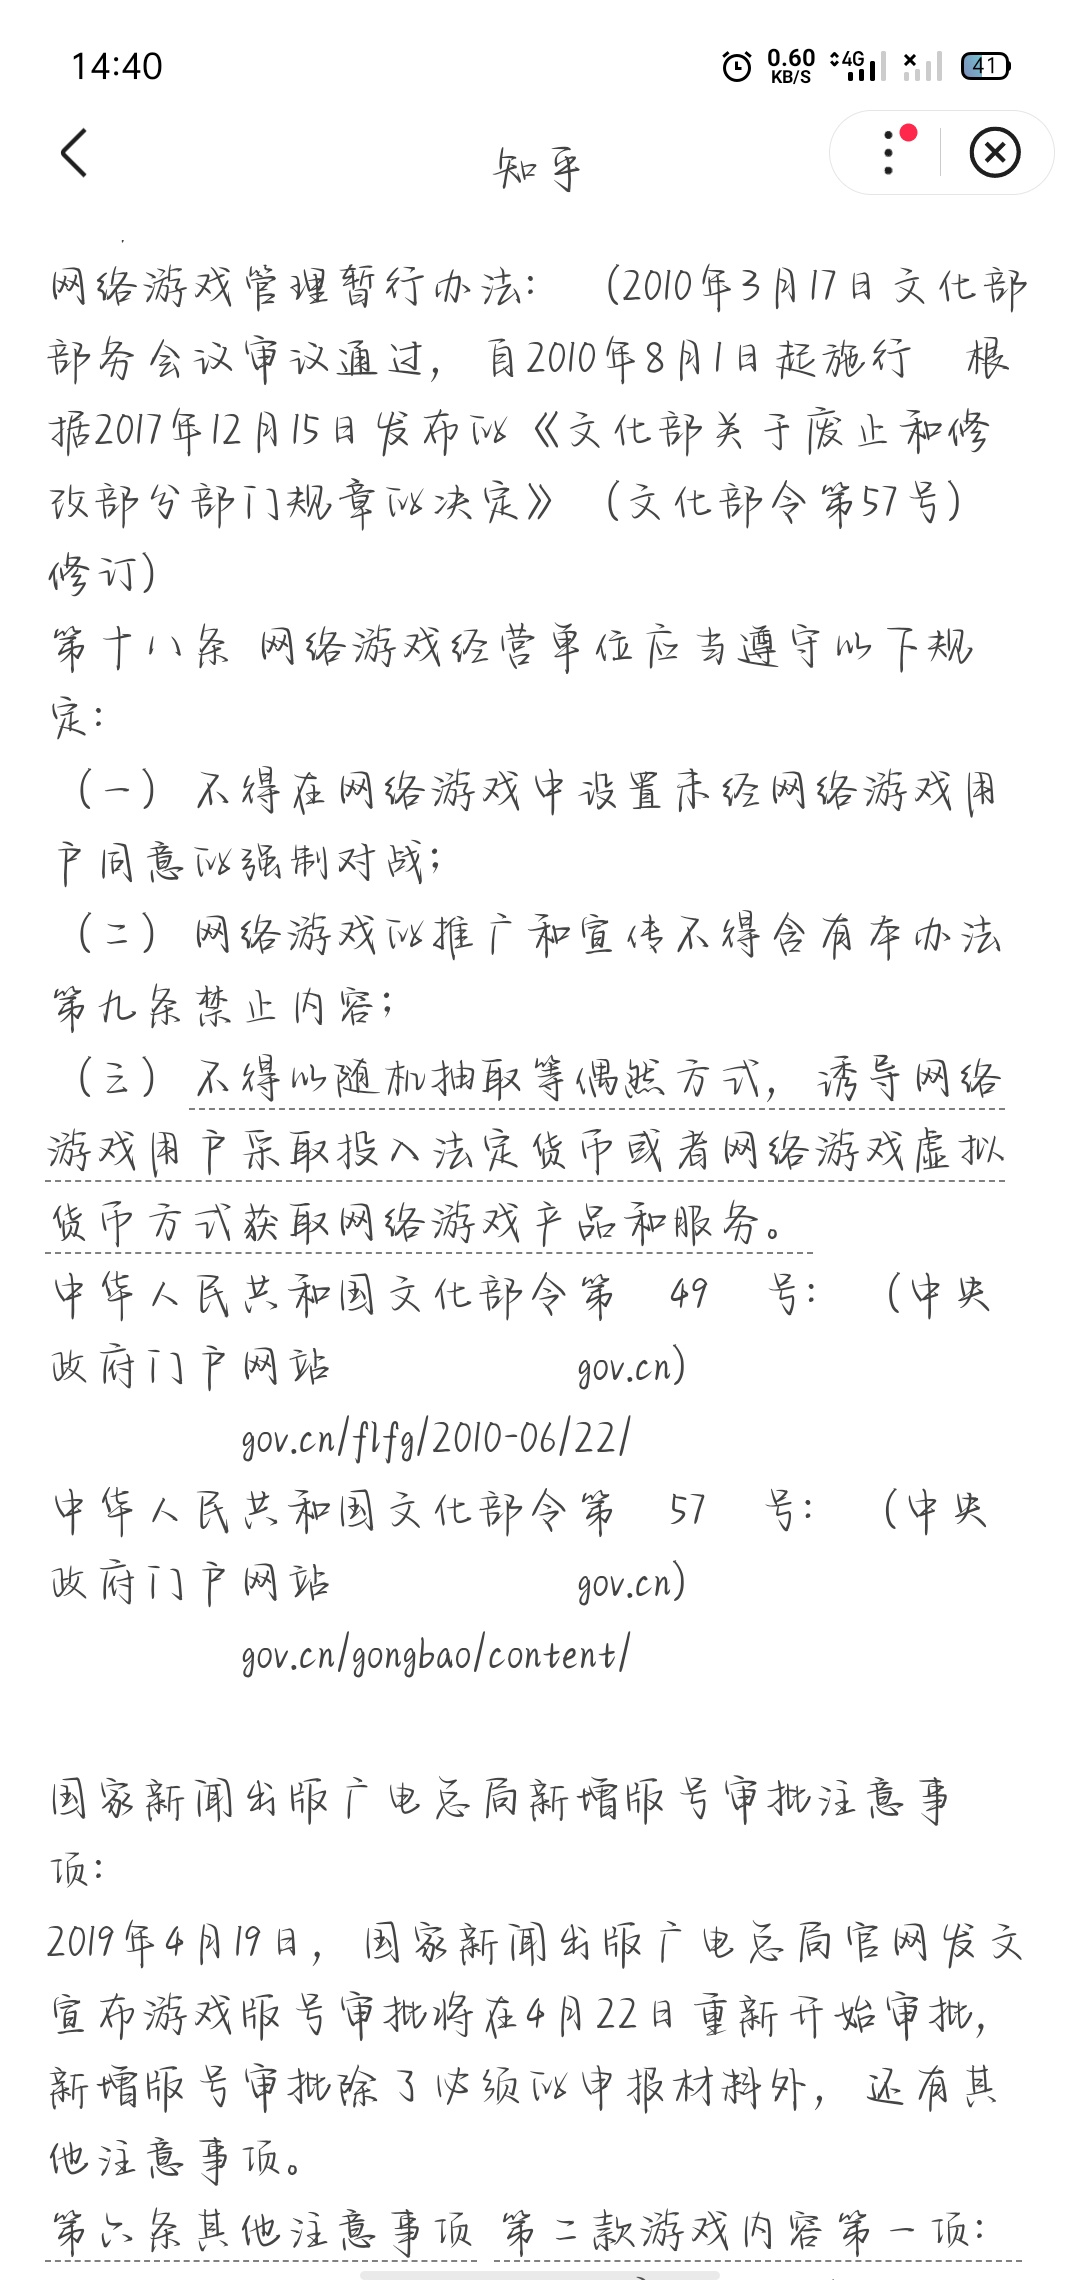 14:40
0.60
KB/S
4G
41
知乎
网络游戏管理暂行办法： （2010年3月17日文化部
部务会议审议通过，自2010年8月1日起施行 根
据2017年12月15日发布的《文化部关于废止和修
改部分部门规章的决定》（文化部令第57号）
修订）
第十八条 网络游戏经营单位应当遵守以下规
定：
（一）不得在网络游戏中设置未经网络游戏用
户同意的强制对战；
（二）网络游戏的推广和宣传不得含有本办法
第九条禁止内容；
（三）不得以随机抽取等偶然方式，诱导网络
游戏用户采取投入法定货币或者网络游戏虚拟
货币方式获取网络游戏产品和服务。
中华人民共和国文化部令第 49 号： （中央
政府门户网站 gov.cn）
gov.cn/flfg/2010-06/22/
中华人民共和国文化部令第 57 号： （中央
政府门户网站 gov.cn）
gov.cn/gongbao/content/
国家新闻出版广电总局新增版号审批注意事
项：
2019年4月19日，国家新闻出版广电总局官网发文
宣布游戏版号审批将在4月22日重新开始审批，
新增版号审批除了必须的申报材料外，还有其
他注意事项。
第六条其他注意事项 第二款游戏内容第一项：